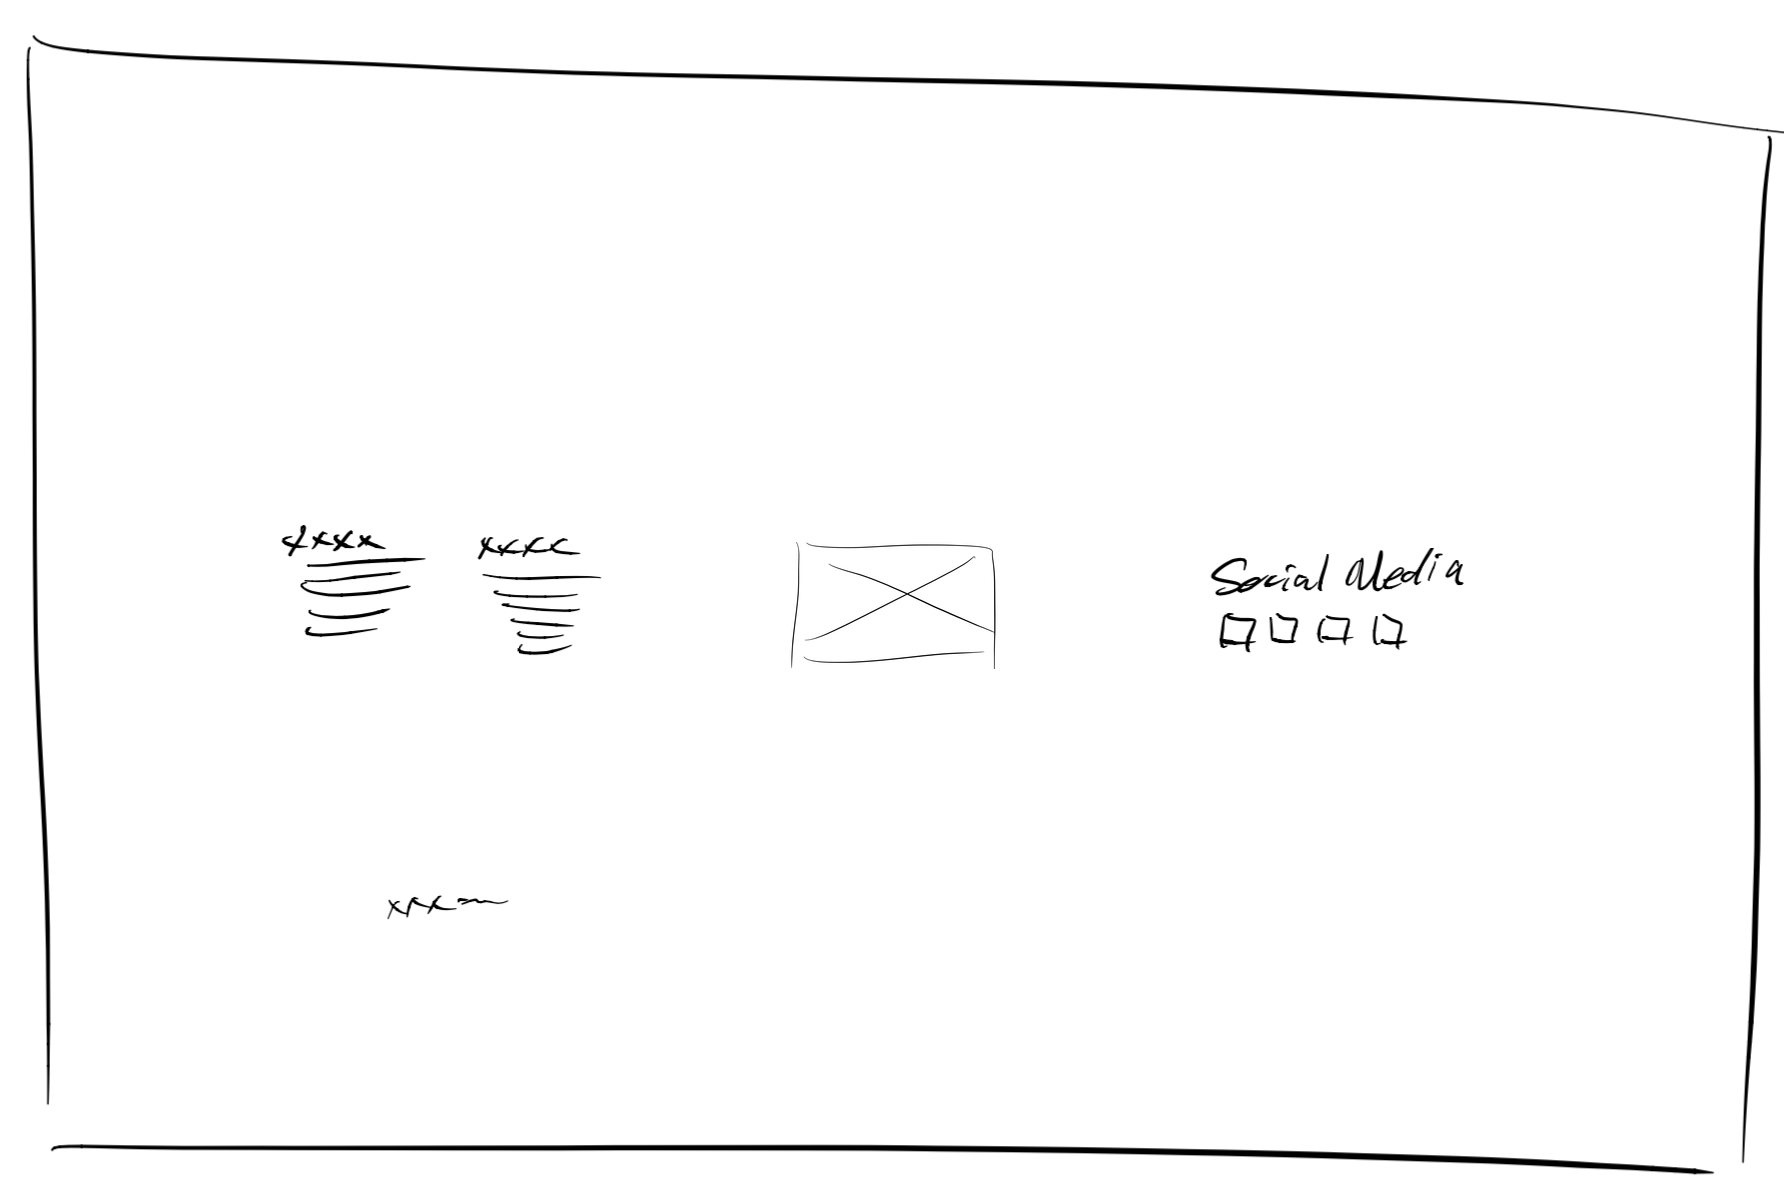 xxxx
xxxx
Social Media